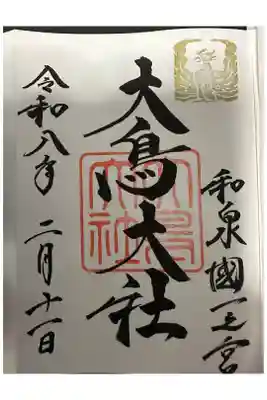 和泉國一之宮
大鳥大社
大鳥大社
令和八年 二月十一日